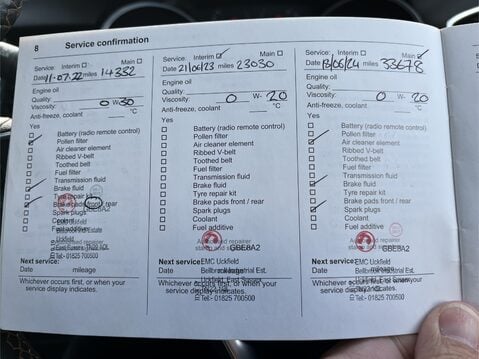 8 Service confirmation
Service: Interim Main
Date 11-07-22 miles 14352
Engine oil
Quality:
Viscosity: 0 W- 30
Anti-freeze, coolant °C
Yes
Battery (radio remote control)
Pollen filter
Air cleaner element
Ribbed V-belt
Toothed belt
Fuel filter
Transmission fluid
Brake fluid
Tyre repair kit
Brake pads front / rear
Spark plugs
Coolant
Fuel additive
Uckfield
Next service:
Date mileage
Whichever occurs first, or when your
service display indicates.
Tel:- 01825 700500
Service: Interim Main
Date 21/06/23 miles 23030
Engine oil
Quality:
Viscosity: 0 W- 20
Anti-freeze, coolant °C
Yes
Battery (radio remote control)
Pollen filter
Air cleaner element
Ribbed V-belt
Toothed belt
Fuel filter
Transmission fluid
Brake fluid
Tyre repair kit
Brake pads front / rear
Spark plugs
Coolant
Fuel additive
GBE8A2
Next service:
EMC Uckfield
Date mileage
Whichever occurs first, or when your
service display indicates.
Tel:- 01825 700500
Service: Interim Main
Date 13/06/24 miles 33678
Engine oil
Quality:
Viscosity: 0 W- 20
Anti-freeze, coolant °C
Yes
Battery (radio remote control)
Pollen filter
Air cleaner element
Ribbed V-belt
Toothed belt
Fuel filter
Transmission fluid
Brake fluid
Tyre repair kit
Brake pads front / rear
Spark plugs
Coolant
Fuel additive
repairer
GBE8A2
Next service:
EMC Uckfield
Date mileage
Whichever occurs first, or when your
service display indicates.
Tel:- 01825 700500